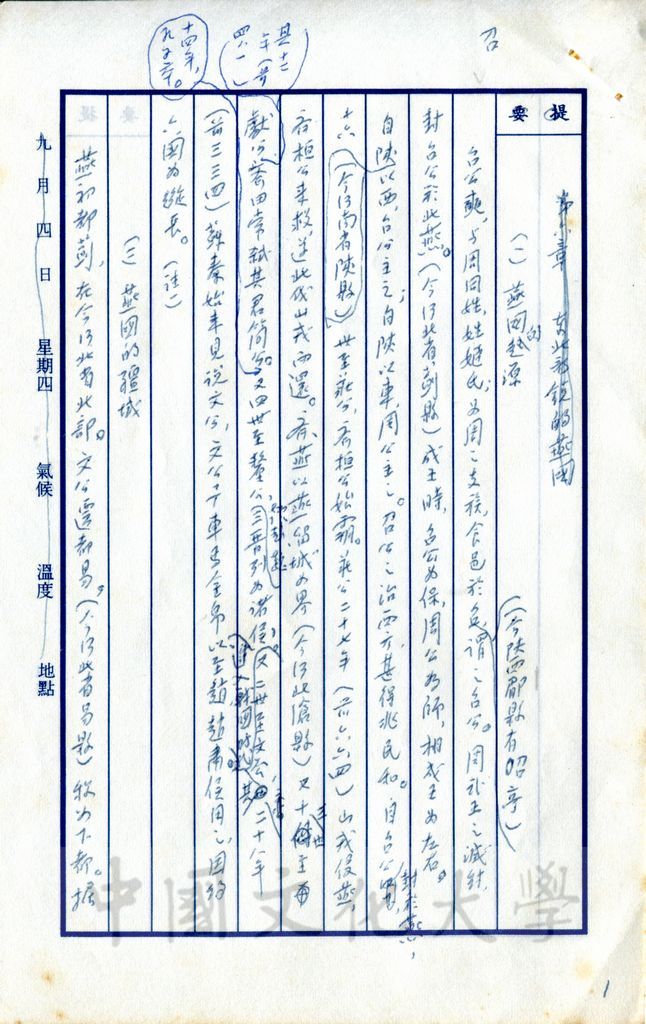 召
其十二年(前四八一)
十四年,九五章。
提要
第六章 東北初鎮的燕國
(一) 燕國的起源
(今陝西郿縣有召亭)
召公奭,与周同姓,姓姬氏,为周之支族,食邑於召,謂之召公。周武王之滅紂,
封召公於北燕。(今河北省薊縣)成王時,召公为保,周公为師,相成王为左右。
自陝以西,召公主之;自陝以東,周公主之。召公之治西方,甚得兆民和。自召公
封於燕,
十六(今河南省陝縣)世至莊公,齊桓公始霸。莊公二十七年(前六六四)山戎侵燕,
齊桓公来救,遂北伐山戎而還。齊、燕以燕留城为界(今河北滄縣)又十
三世
至
獻公,齊田常弒其君簡公。又四世至釐公,三晉列为諸侯。又二世至文公,二十八年
進入戰國時代
(前三三四)蘇秦始来見說文公,文公予車馬金帛以至趙,趙肅侯用之,因约
六國为縱長。(註一)
(二) 燕國的疆域
燕初都薊,在今河北省北部。文公遷都易,(今河北省易縣)称为下都。据
九月四日 星期四 氣候 溫度 地點
中國文化大學
1